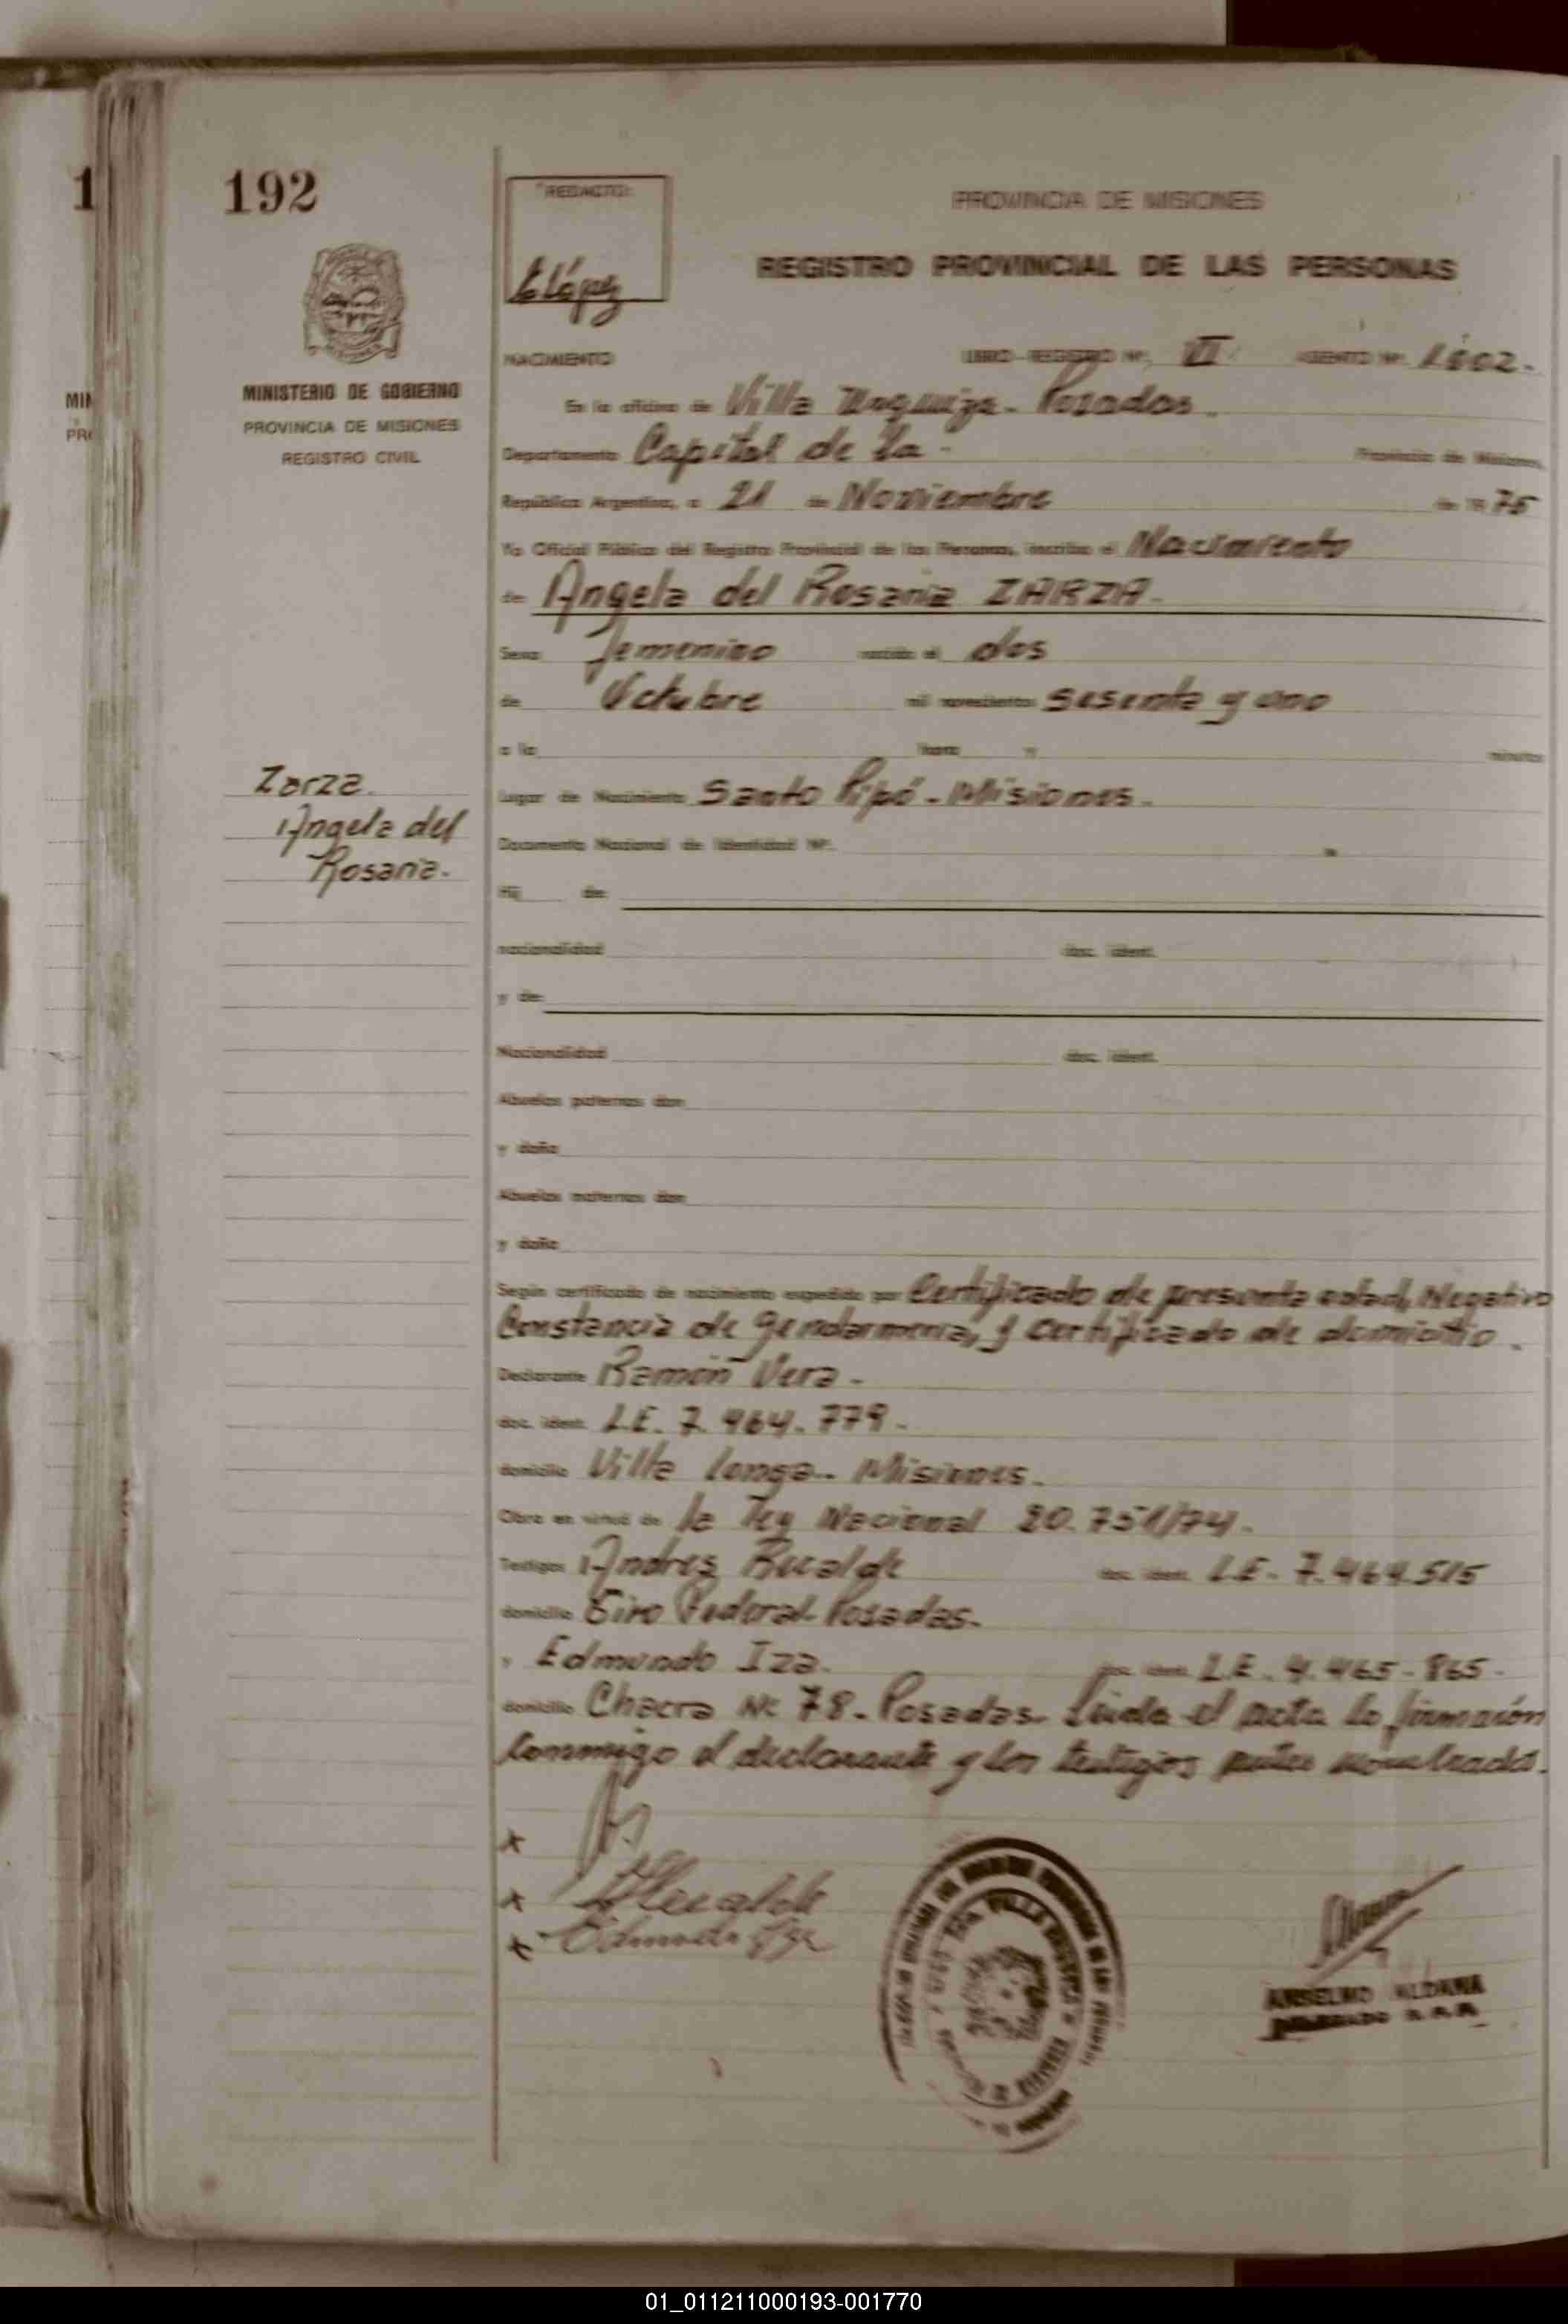 192
REDACTO:
López
PROVINCIA DE MISIONES
REGISTRO PROVINCIAL DE LAS PERSONAS
MINISTERIO DE GOBIERNO
PROVINCIA DE MISIONES
REGISTRO CIVIL
NACIMIENTO LIBRO - REGISTRO Nº. VI ASIENTO Nº. 1802.-
En la oficina de Villa Urquiza - Posadas.
Departamento Capital de la - Provincia de Misiones,
República Argentina, a 21 de Noviembre de 19 75
Yo Oficial Público del Registro Provincial de las Personas, inscribo el Nacimiento
de Angela del Rosario ZARZA.
Sexo Femenino nacido el dos
de Octubre mil novecientos sesenta y uno
a la hora y minutos
Lugar de Nacimiento Santo Pipó - Misiones.
Zarza.
Angela del
Rosario.
Documento Nacional de Identidad Nº.
Hij de
nacionalidad doc. ident.
y de
Nacionalidad doc. ident.
Abuelos paternos don
y doña
Abuelos maternos don
y doña
Según certificado de nacimiento expedido por Certificado de presunta edad, Negativo
Constancia de Gendarmeria, y certificado de domicilio.
Declarante Ramón Vera -
doc. ident. L.E. 7.464.779.
domicilio Villa Longa - Misiones.
Obra en virtud de la Ley Nacional 20.751/74.
Testigos Andres Recalde doc. ident. L.E. 7.464.515
domicilio Tiro Federal - Posadas.
y Edmundo Iza. doc. ident. L.E. 4.465.865.
domicilio Chacra Nº 78 - Posadas - Leida el acta la firmarón
Conmigo el declarante y los testigos antes nombrados.
x
x ARecalde
x Edmundo Iza
ANSELMO ALDANA
DELEGADO R.P.P.
01_011211000193-001770